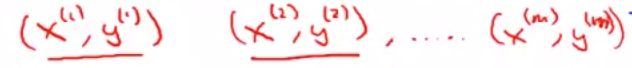 (x⁽¹⁾, y⁽¹⁾) (x⁽²⁾, y⁽²⁾), ..... (x⁽ᵐ⁾, y⁽ᵐ⁾)